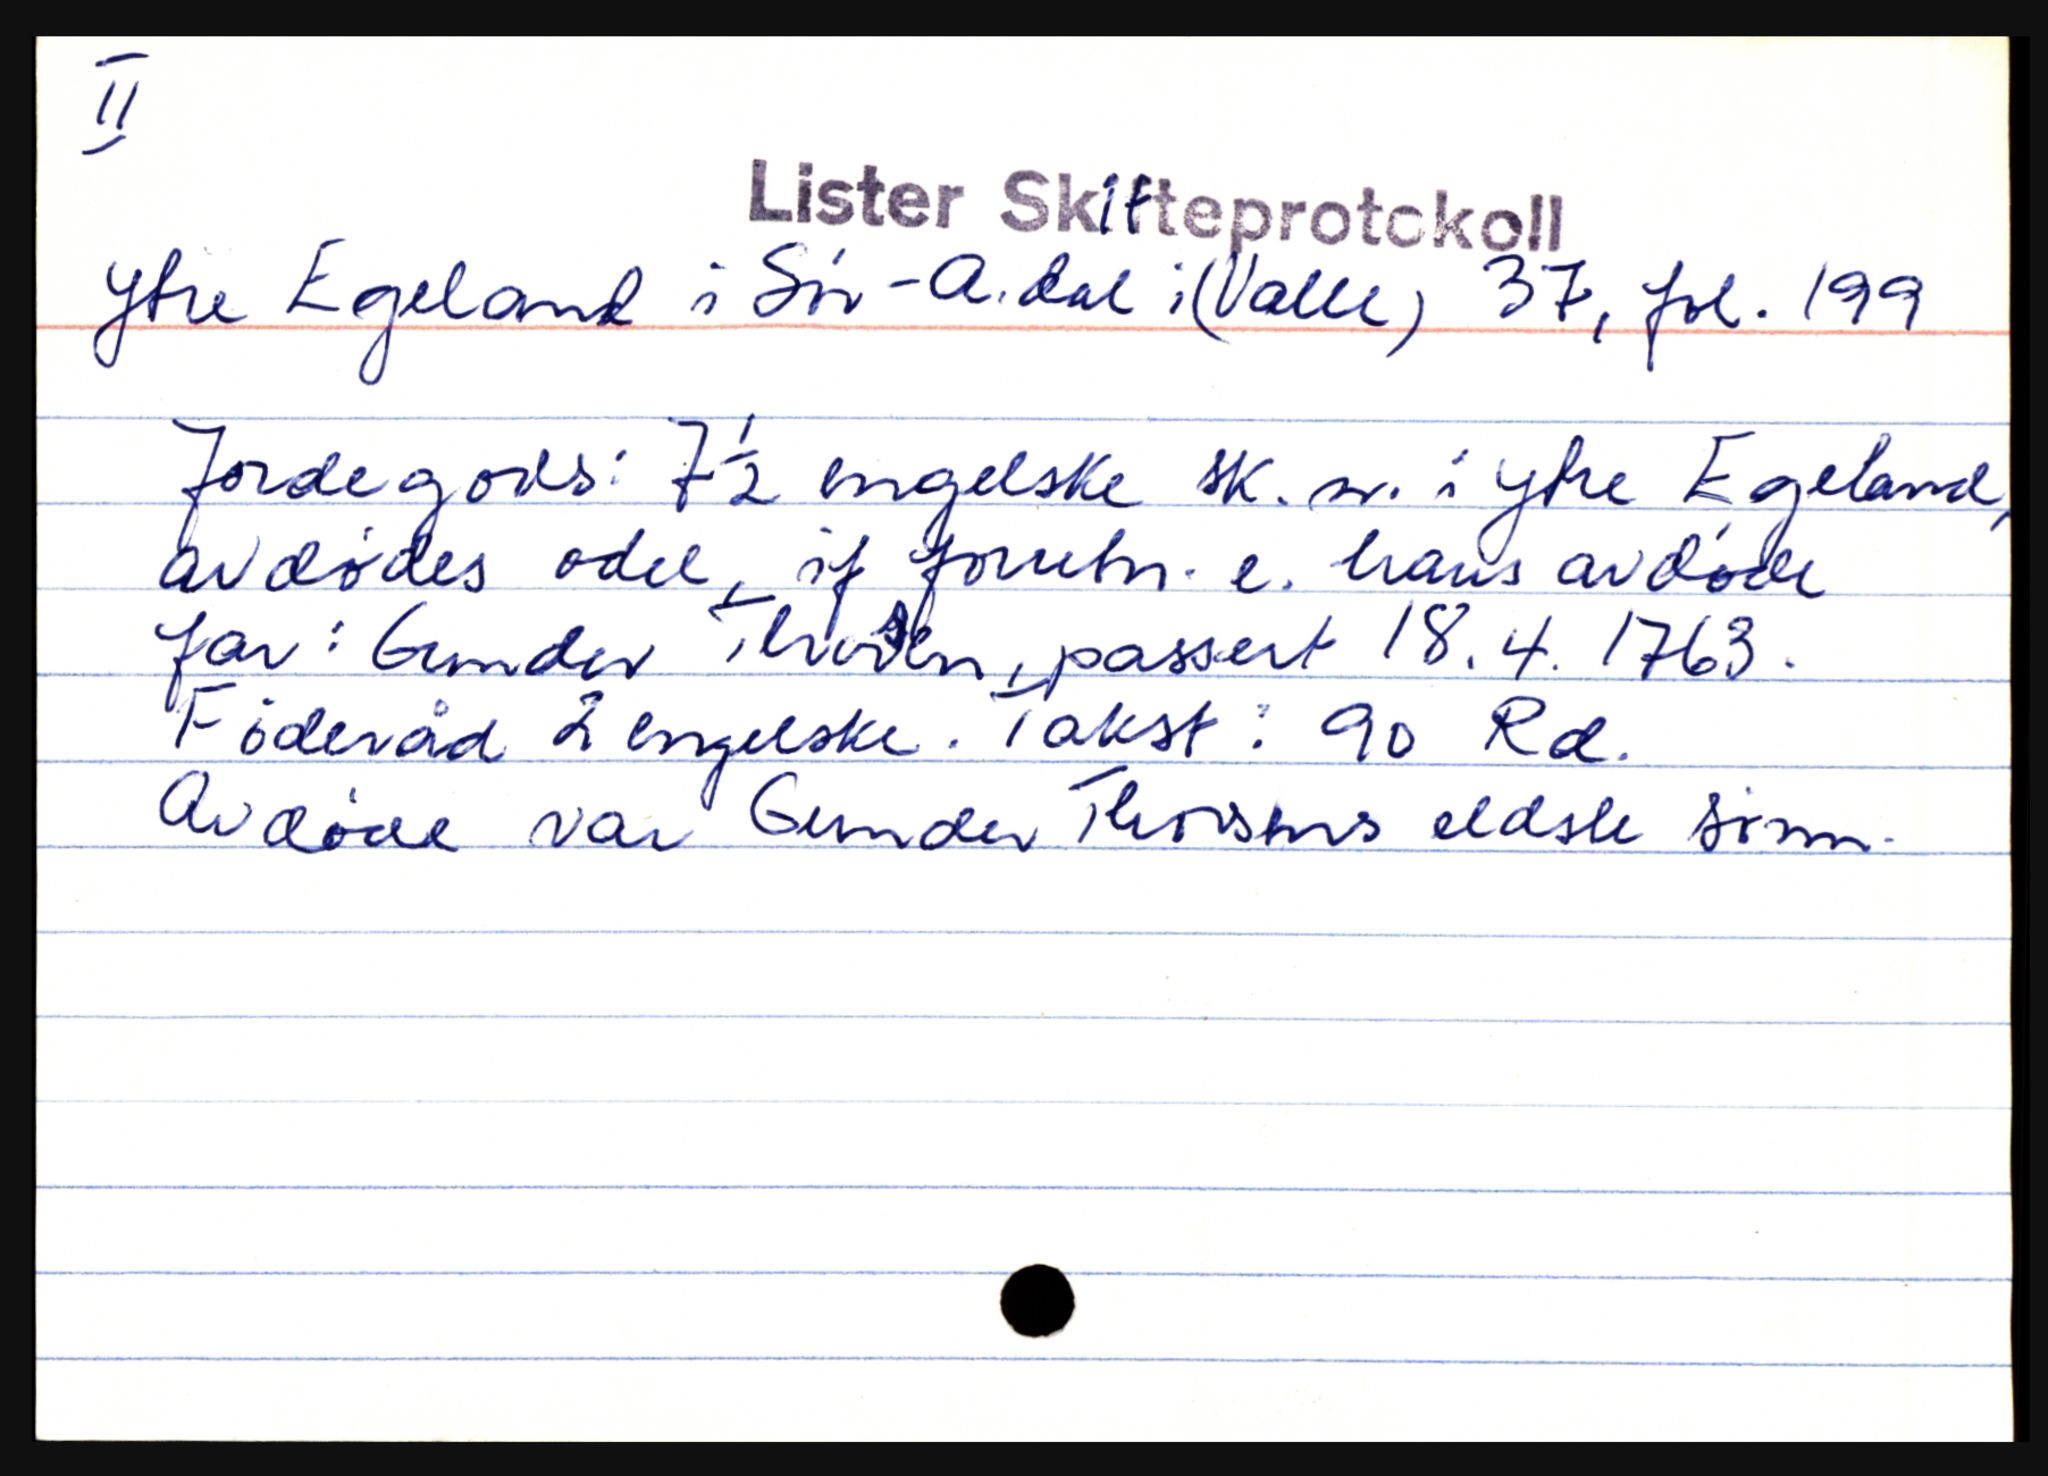 II
Lister Skifteprotokoll
Ytre Egeland i Sør-A.dal i (Valle) 37, fol. 199
Jordegods: 7 1/2 engelske sk. m. i Ytre Egeland,
avdødes odel, if forretn. e. hans avdøde
far: Gunder Thorsen, passert 18.4.1763.
Föderåd 2 engelske. Takst: 90 Rd.
Avdøde var Gunder Thorsens eldste sønn.